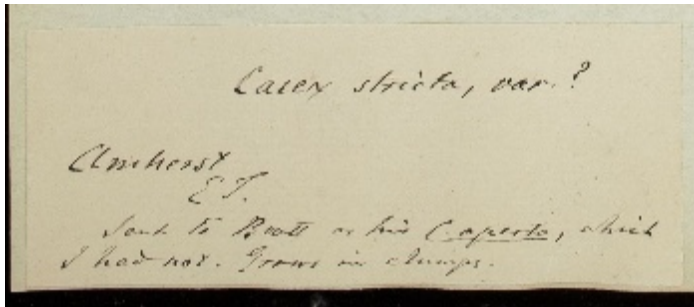 Carex stricta, var.?
Amherst
E T.
Sent to Boott as his C. aperta, which
I had not. Grows in clumps.